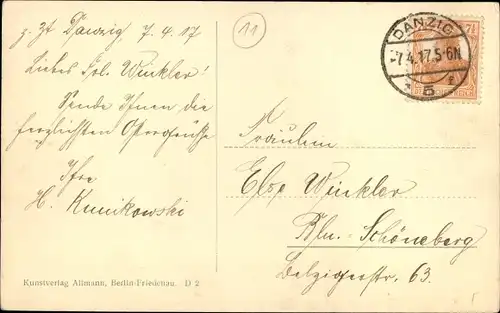 z. Zt Danzig, 7.4.17
Liebes Frl. Winkler!
Sende Ihnen die
herzlichsten Ostergrüße
Ihre
H. Kunikowski
11
DANZIG
-7.4.17.5-6N
* 5 f
7½
Fräulein
Else Winkler
Bln. Schöneberg
Belzigerstr. 63.
Kunstverlag Altmann, Berlin-Friedenau. D 2